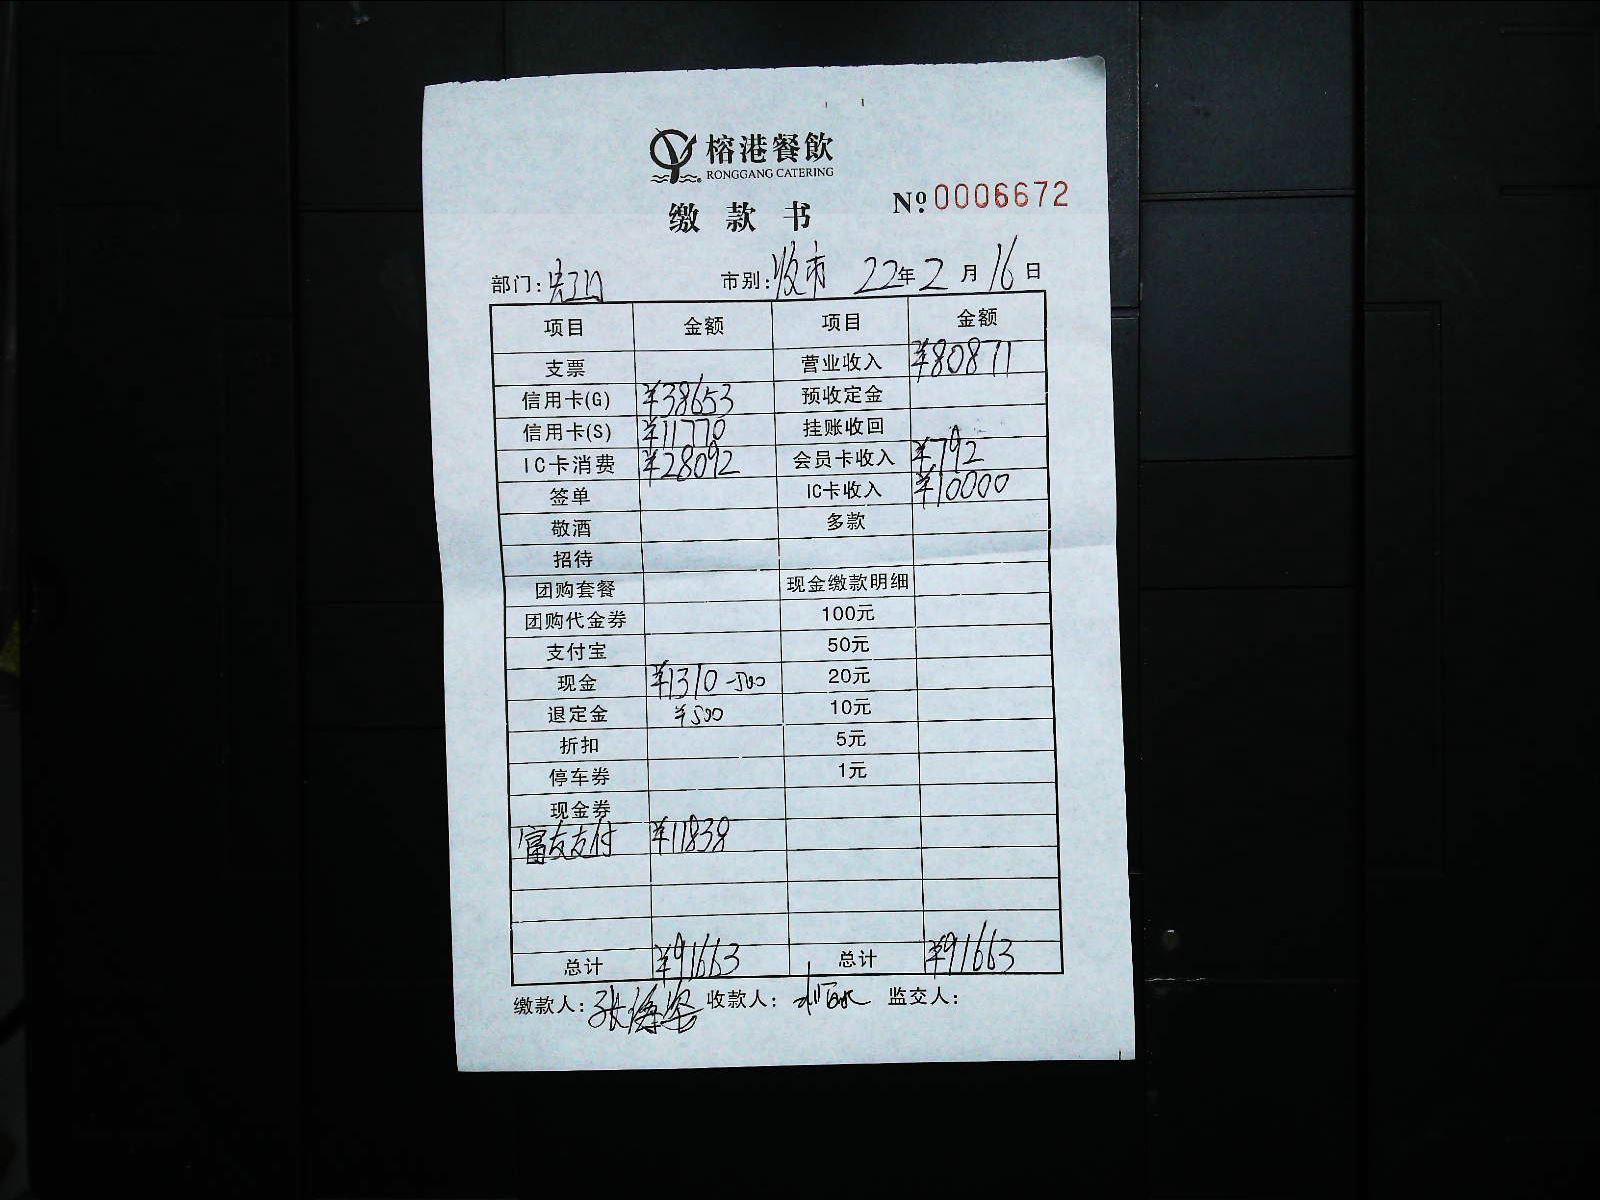 榕港餐飲
RONGGANG CATERING
缴款书 №0006672
部门: 市别:收市 22年2月16日
项目 金额 项目 金额
支票 营业收入 ¥80871
信用卡(G) ¥38653 预收定金
信用卡(S) ¥11770 挂账收回
IC卡消费 ¥28092 会员卡收入 ¥792
签单 IC卡收入 ¥10000
敬酒 多款
招待
团购套餐 现金缴款明细
团购代金券 100元
支付宝 50元
现金 ¥1310-500 20元
退定金 ¥500 10元
折扣 5元
停车券 1元
现金券
富友支付 ¥11838
总计 ¥91663 总计 ¥91663
缴款人:张海 收款人: 监交人: